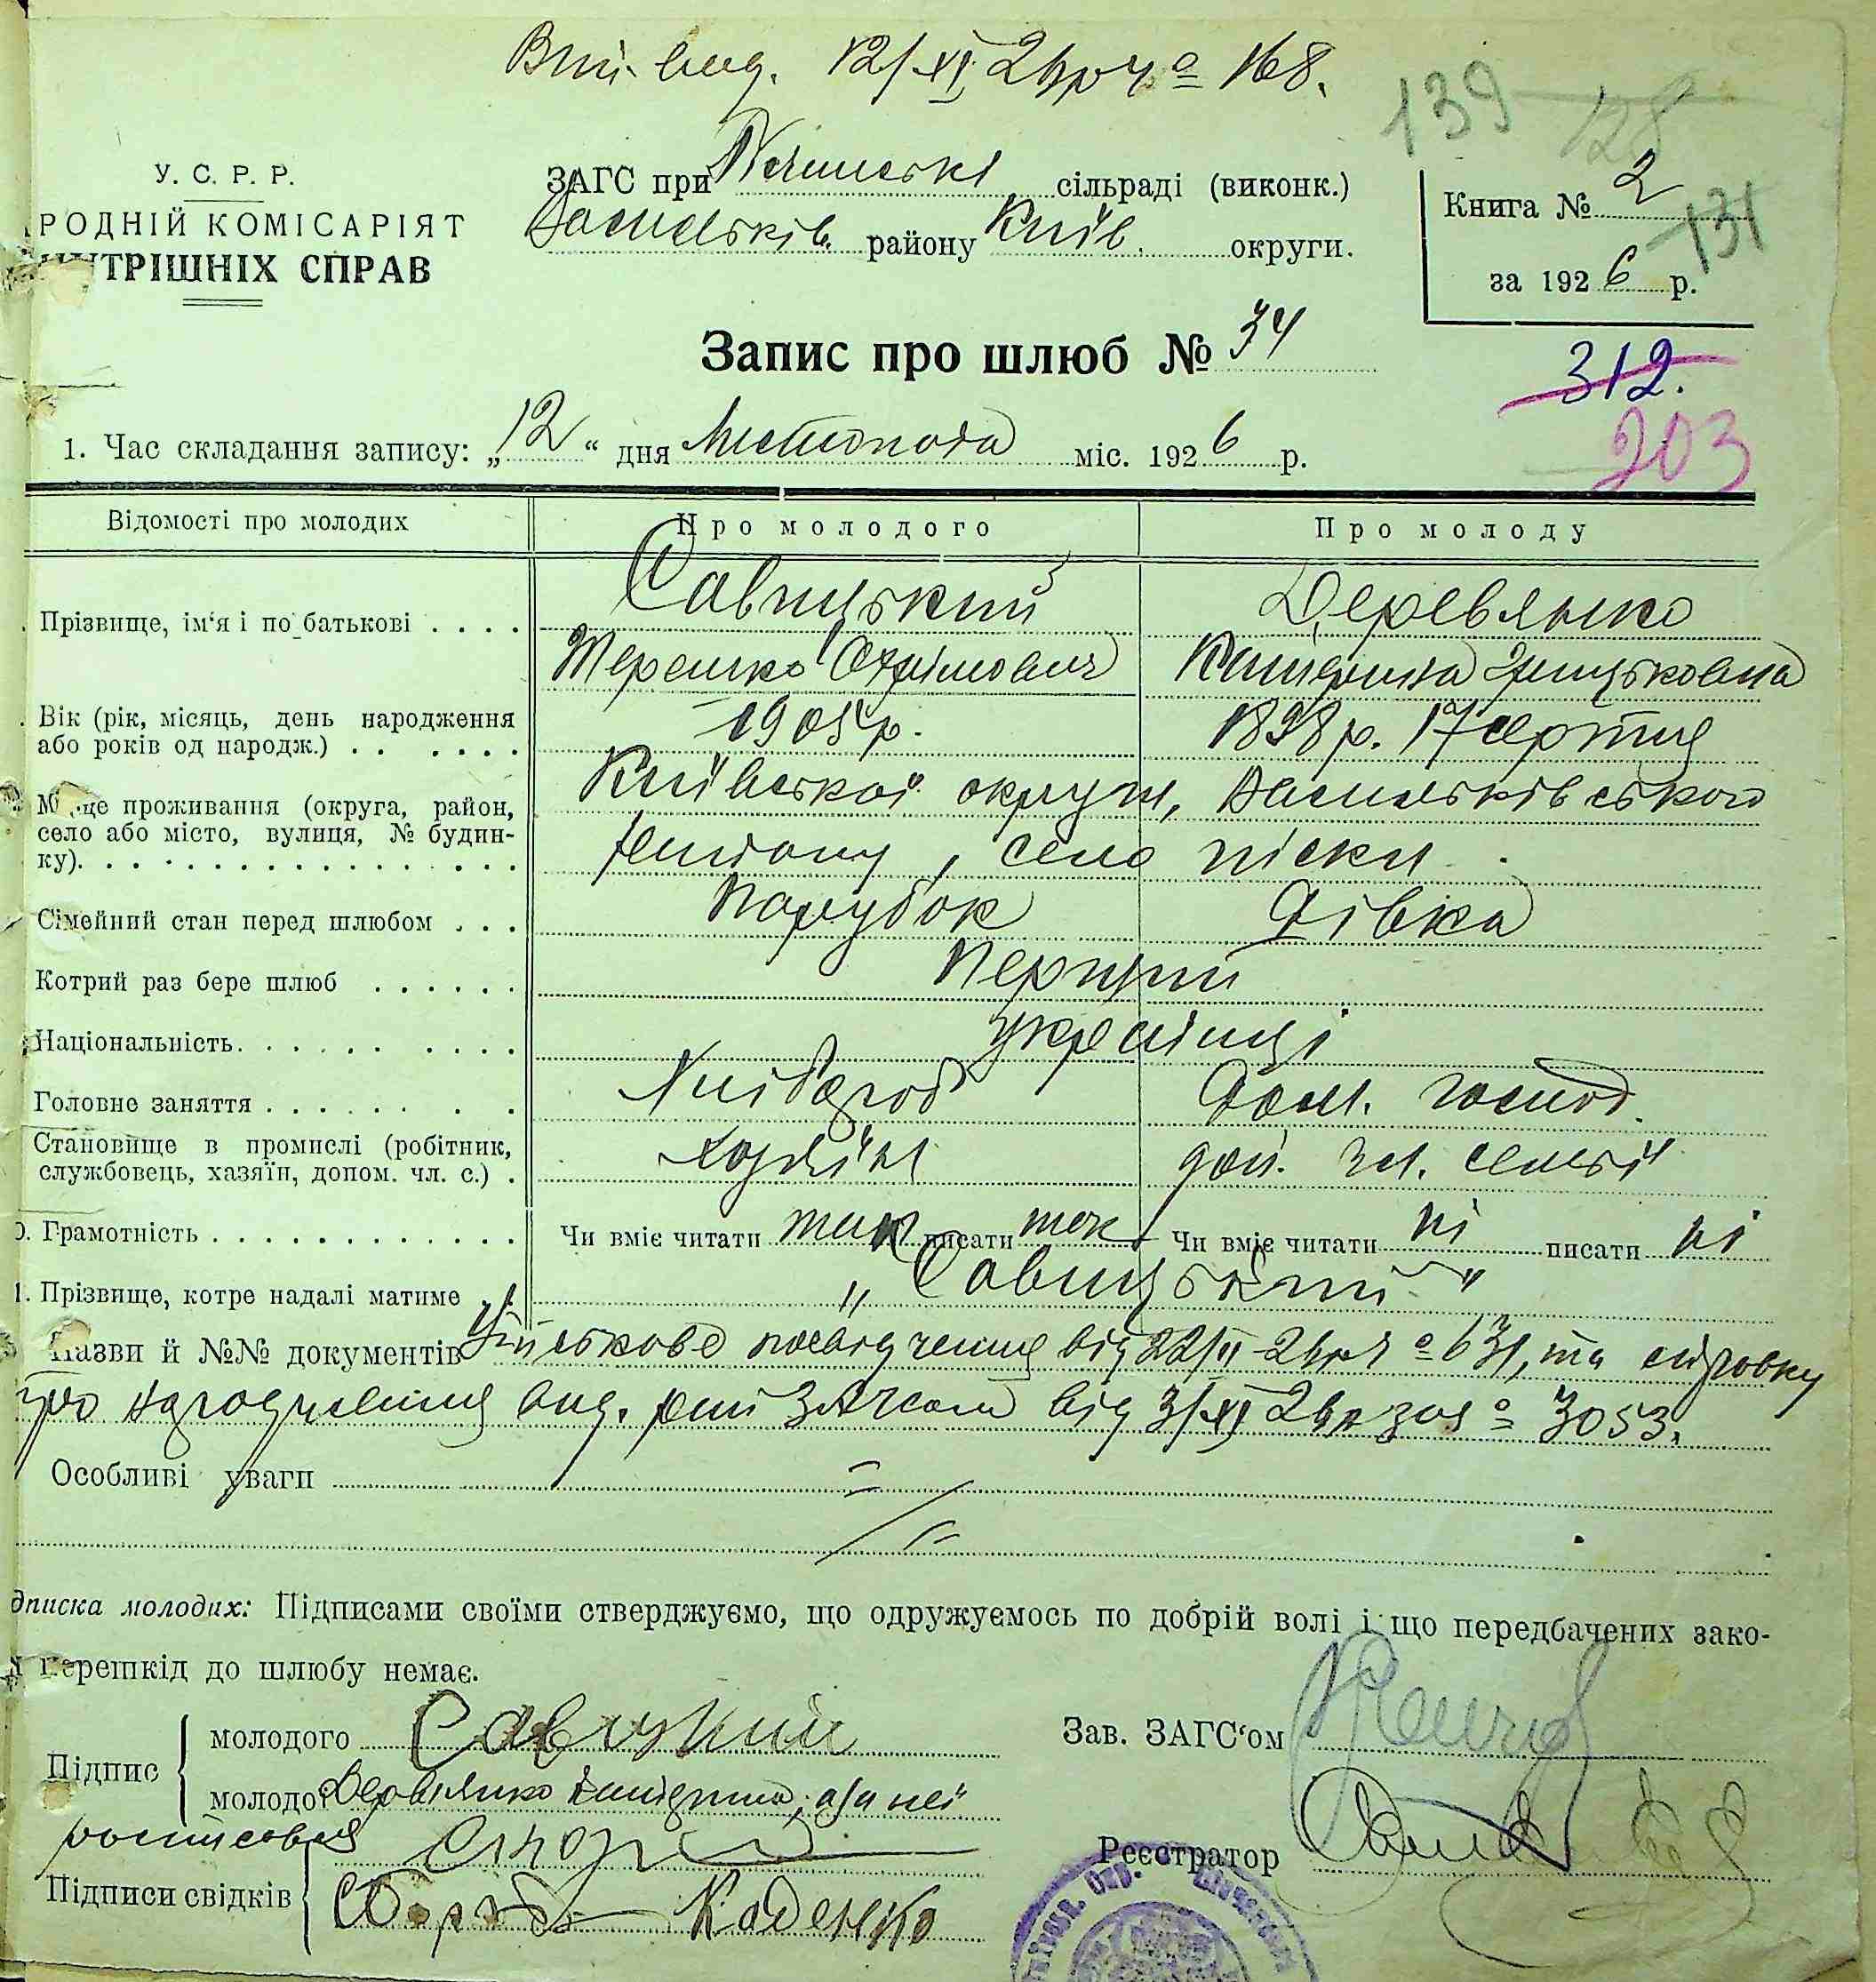 Вип. вид. 12/XI 26р ч º 168.
139 128
У. С. Р. Р.
РОДНІЙ КОМІСАРІЯТ
УТРІШНІХ СПРАВ
ЗАГС при сільраді (виконк.)
Васильків. району Київ. округи.
Книга № 2
131
за 1926 р.
Запис про шлюб № 34
312.
203
1. Час складання запису: „12“ дня Листопада міс. 1926 р.
Відомості про молодих Про молодого Про молоду
Прізвище, ім‘я і по батькові . . . . Савицький Деревянко
Терешко Юхимович Катерина
Вік (рік, місяць, день народження або років од народж.) 1905 р. 1898 р. 17
Місце проживання (округа, район, село або місто, вулиця, № будинку). Київської округи, Васильківського
району, село Піски
Сімейний стан перед шлюбом . . . Парубок Дівка
Котрий раз бере шлюб . . . . . . Перший
Національність. . . . . . . . . . українці
Головне заняття . . . . . . . . Хлібороб Дом. господ.
Становище в промислі (робітник, службовець, хазяїн, допом. чл. с.) . хазяїн доп. чл. семьї
0. Грамотність . . . . . . . . . . . . Чи вміє читати так писати так Чи вміє читати ні писати ні
1. Прізвище, котре надалі матиме . . „Савицький“
Назви й №№ документів Військове посвідчення від 22/II 26р ч º 631, та справку
про народження вид. рай ЗАГСом від 3/XI 26р за º 3053.
Особливі уваги
дписка молодих: Підписами своїми стверджуємо, що одружуємось по добрій волі і що передбачених зако-
перешкід до шлюбу немає.
Підпис молодого Савицкий
молодої Деревянко Катерина, а за неї
росписався
Зав. ЗАГС‘ом
Реєстратор
Підписи свідків Каденко